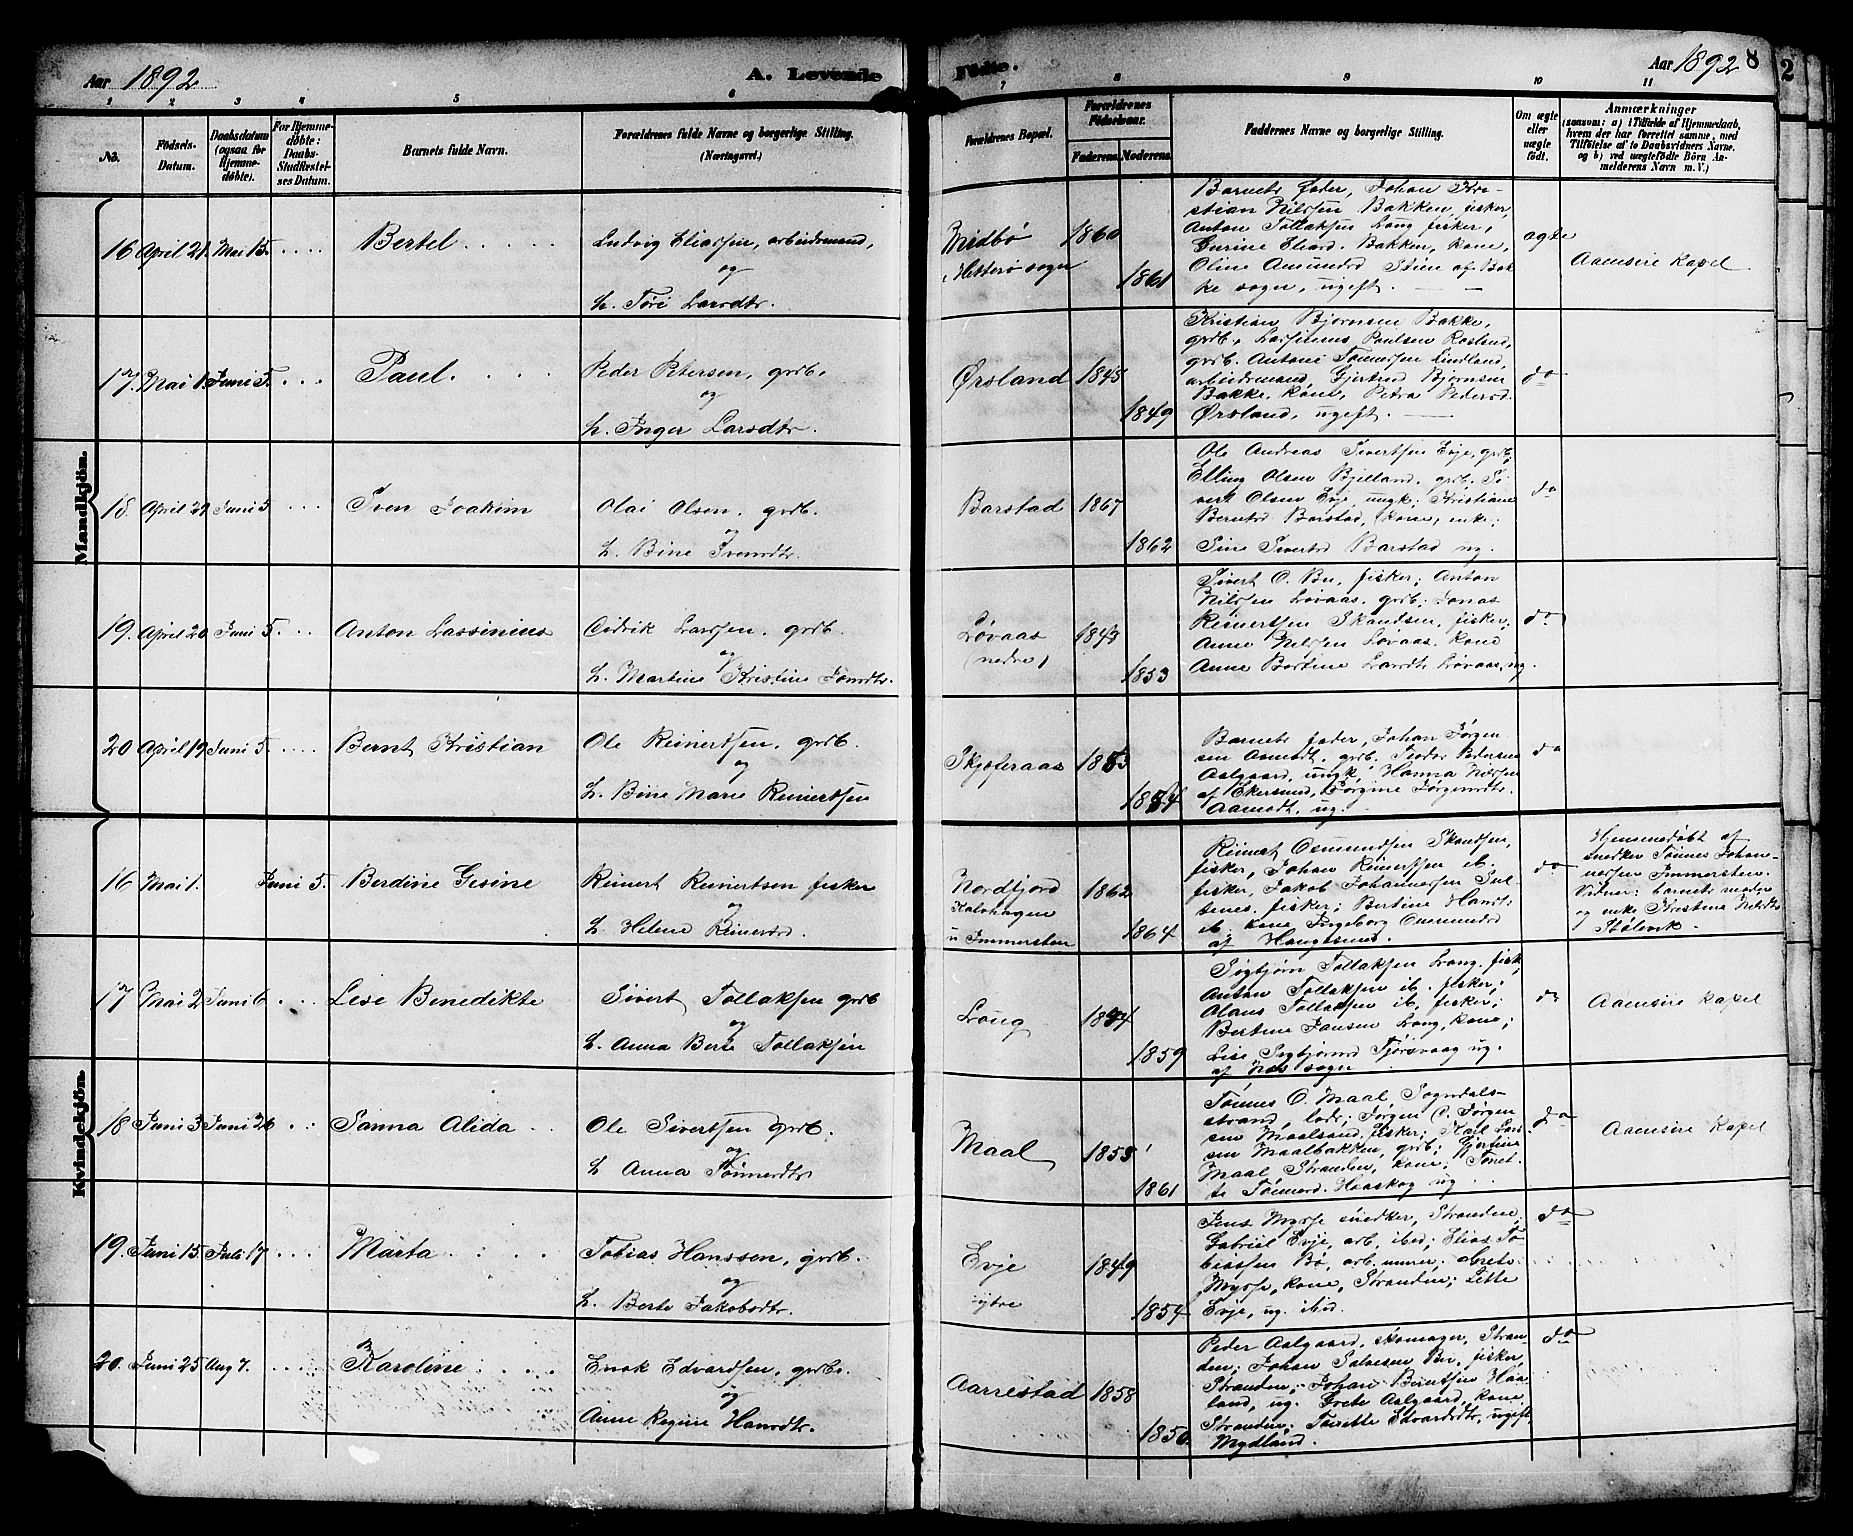 Aar 1892
A. Levende
Fødte.
Aar 1892
8
2
1 2 3 4 5 6 7 8 9 10 11
No.
Födsels-
Datum.
Daabsdatum
(ogsaa for
Hjemme-
døbte).
For Hjemme-
døbte:
Daabs-
Stadfæstel-
ses Datum.
Barnets fulde Navn.
Forældrenes fulde Navne og borgerlige Stilling.
(Næringsvei.)
Forældrenes Bopæl.
Forældrenes
Födselsaar.
Faderens. Moderens.
Faddernes Navne og borgerlige Stilling.
Om ægte
eller
uægte
født.
Anmærkninger
(saasom: a) i Tilfælde af Hjemmedaab,
hvem der har forrettet samme, med
Tilføielse af to Daabsvidners Navne.
og b) ved uægtefødte Börn An-
melderens Navn m. V.)
Mandkjön.
16 April 21. Mai 15. Bertel
Ludvig Eliassen, arbeidsmand,
og
h. Tori Larsdtr.
Midbø
i Hitterø sogn
1860
1861
Barnets fader, Johan Kri-
stian Nilssen Bakken, fisker,
Anton Tollaksen Long fisker,
Gurine Eliasd. Bakken, kone,
Oline Amundsd Stien af Bak
ke sogn, ugift.
ægte
Aaensire Kapel
17. Mai 1. Juni 5. Paul.
Peder Petersen, grdb.
og
h. Inger Larsdtr.
Ørsland
1849
Kristian Bjørnsen Bakke,
grdb. Lassinius Paulsen Rostad,
grdb. Antoni Tønnessen Lindland,
arbeidsmand, Gjertrud Bjørnsen
Bakke, kone, Petra Pedersd.
Ørsland, ugift.
do
18. Juni 5 Sven Joakim
Olai Olsen, grdb.
og
h. Bine Svendtr.
Barstad
1867
1862
Ole Andreas Sivertsen Evje, grdb,
Elling Olsen Bjelland, grdb. Si-
vert Olsen Evje, ungk; Kristiane
Berntsd Barstad, kone, enke;
Sine Sivertsd Barstad ug.
do
19. April 20 Juni 5. Anton Lassinius
Lassen, grdb.
og
h. Martine Kristine
Løvaas
(nedre)
1853
Sivert O. Bu, fisker; Anton
Nilssen Løvaas, grdb; Jonas
Reinertsen Skandsen, fisker;
Anne Nilssen Løvaas, kone
Anne Bertine Larsdt Løvaas, ug.
do
20 April 19 Juni 5. Bernt Kristian
Ole Reinertsen, grdb.
og
h. Bine Marie Reinertsen
1853
1854
Barnets fader, Johan Jørgen
sen Aamodt, grdb. Teodor Pedersen
Aalgaard, ungk, Hanna Nilssen
af Ekersund, Jørgine Jørgensdtr.
Aamodt, ug.
do
Kvindekjön.
16 Mai 1. Juni 5. Berdine Gesine
Reinert Reinertsen fisker
og
h. Helene Reinersd.
Nordfjord
Kalvhagen
u. Immersten
1862
1864
Reinert Osmundsen Skandsen,
fisker, Johan Reinertsen ib.
fisker, Jakob Johannessen
fisker; Bertine Hansdt:
ib. kone Ingeborg Osmundsd
af Haugesund.
do
Hjemmedøbt af
snedker Tønnes Johan-
nessen Immersten.
Vidner: barnets moder
og enke Kristine Nilsdtr
Stølevik.
17 Mai 2 Juni 6. Lise Benedikte
Sivert Tollaksen grdb
og
h. Anna Berte Tollaksen
Long
1859
Sigbjørn Tollaksen Long, fisk;
Anton Tollaksen ib. fisker;
Tollaksen ib, fisker;
Bertine Jansen Long, kone;
Lise Sigbjørnsd Tjørsvaag ug.
af Næs sogn
do
Aaensire Kapel
18 Juni 3 Juni 26 Sanna Alida
Ole Sivertsen grdb.
og
h Anna Tønnesdtr
Maal
1861
Tønnes O. Maal, Sogndals-
strand, lods; Jørgen C. Jørgen
sen Maalsand, fisker; Karl Lar-
sen Maalbakken, grdb; Gjertine
Maal Stranden, kone; Tonet-
te Tønnesd. Haaskog ug
do
Aaensire Kapel
19. Juni 15. Juli 17 Marta
Tobias Hanssen, grdb.
og
h. Berte Jakobsdtr.
Evje
ytre
1849
1854
Jens Mysse snedker, Strandene,
Gabriel Evje, arb, ibid; Elias To
biassen Bø, arb. Grete
Mysse, kone, Stranden; Lette
Evje, ug. ibid.
do
20. Juni 25 Aug 7. Karoline
Enok Edvardsen, grdb.
og
Anne Regine Hansdtr.
Aarrestad
1858
1850.
Peder Aalgaard, skomager, Stran
den; Johan Salvesen Bu, fisker
Stranden; Johan Berntsen Haa-
land, ug. Grete Aalgaard, kone
Stranden; Edvardsdtr, ugift
Mydland.
do